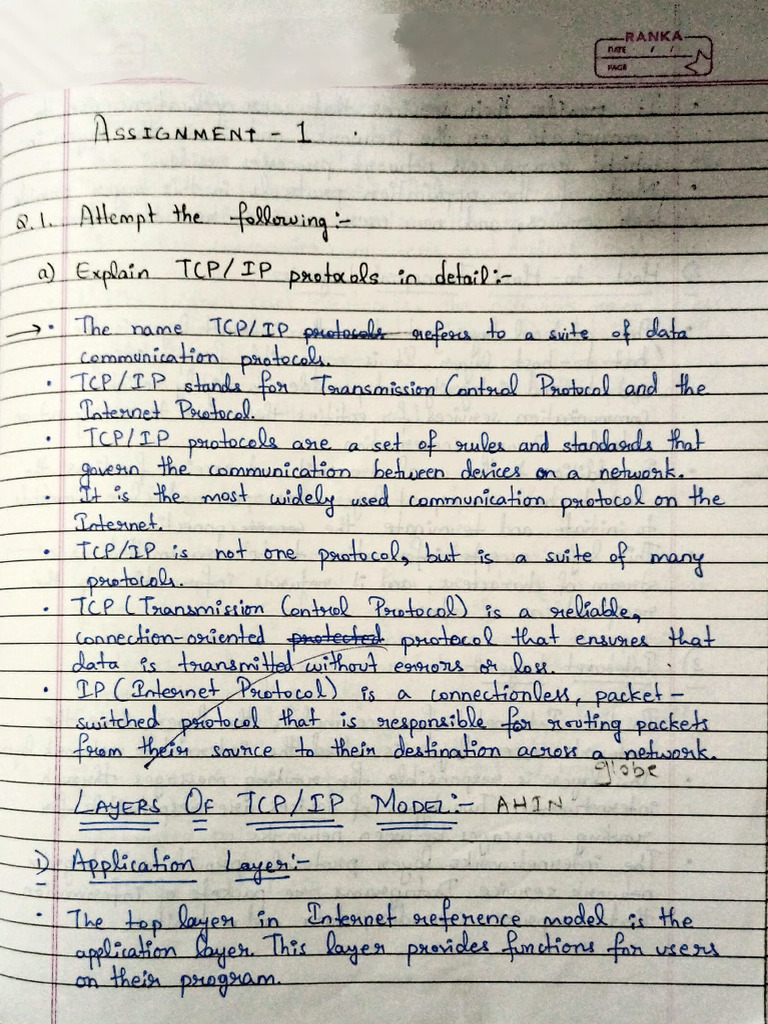 RANKA
DATE / /
PAGE
ASSIGNMENT - 1
Q.1. Attempt the following:-
a) Explain TCP/IP protocols in detail:-
→ • The name TCP/IP protocols refers to a suite of data
communication protocols.
• TCP/IP stands for Transmission Control Protocol and the
Internet Protocol.
• TCP/IP protocols are a set of rules and standards that
govern the communication between devices on a network.
• It is the most widely used communication protocol on the
Internet.
• TCP/IP is not one protocol, but is a suite of many
protocols.
• TCP (Transmission Control Protocol) is a reliable,
connection-oriented protected protocol that ensures that
data is transmitted without errors or loss.
• IP (Internet Protocol) is a connectionless, packet-
switched protocol that is responsible for routing packets
from their source to their destination across a network.
globe
LAYERS OF TCP/IP MODEL:- AHIN
1) Application Layer:-
• The top layer in Internet reference model is the
application layer. This layer provides functions for users
on their program.